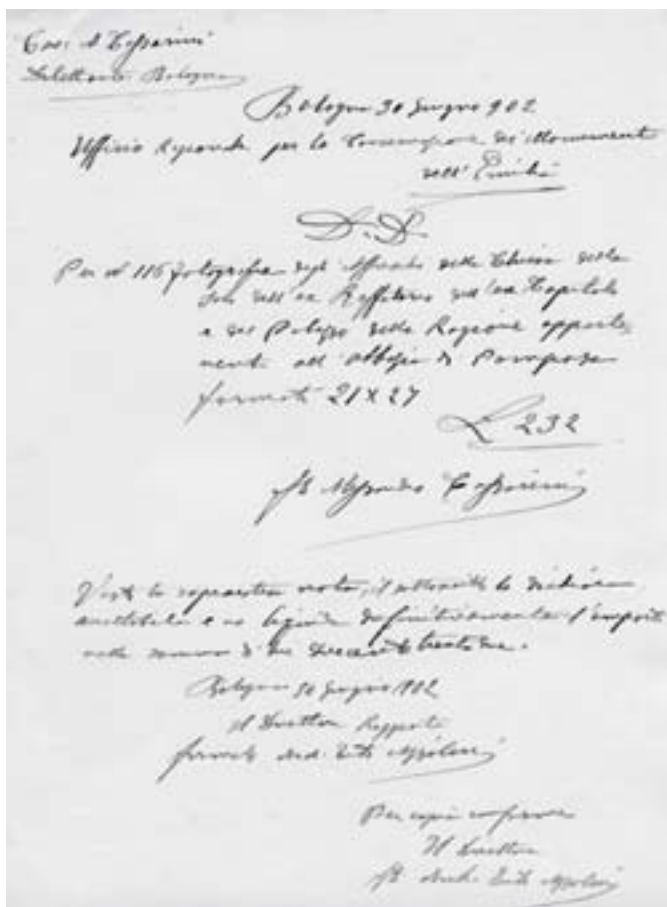 Cav. A Cassarini
Dilettante Bologna
Bologna 30 Giugno 902
Ufficio Regionale per la Conservazione dei Monumenti
dell' Emilia
D. D.
Per N 116 fotografie degli affreschi della Chiesa della
Sala dell'ex Reffettorio dell'ex Capitolo
e del Palazzo della Ragione apparte
nenti all' Abbazia di Pomposa
formato 21 X 27
L 232
Alessandro Cassarini
Vista la soprascritta nota, il sottoscritto la dichiara
accettabile e ne liquida definitivamente l'importo
nella somma di Lire Duecentotrentadue.
Bologna 30 Giugno 902
Il Direttore Reggente
firmato Azzolini
Per copia conforme
Il Direttore
Azzolini